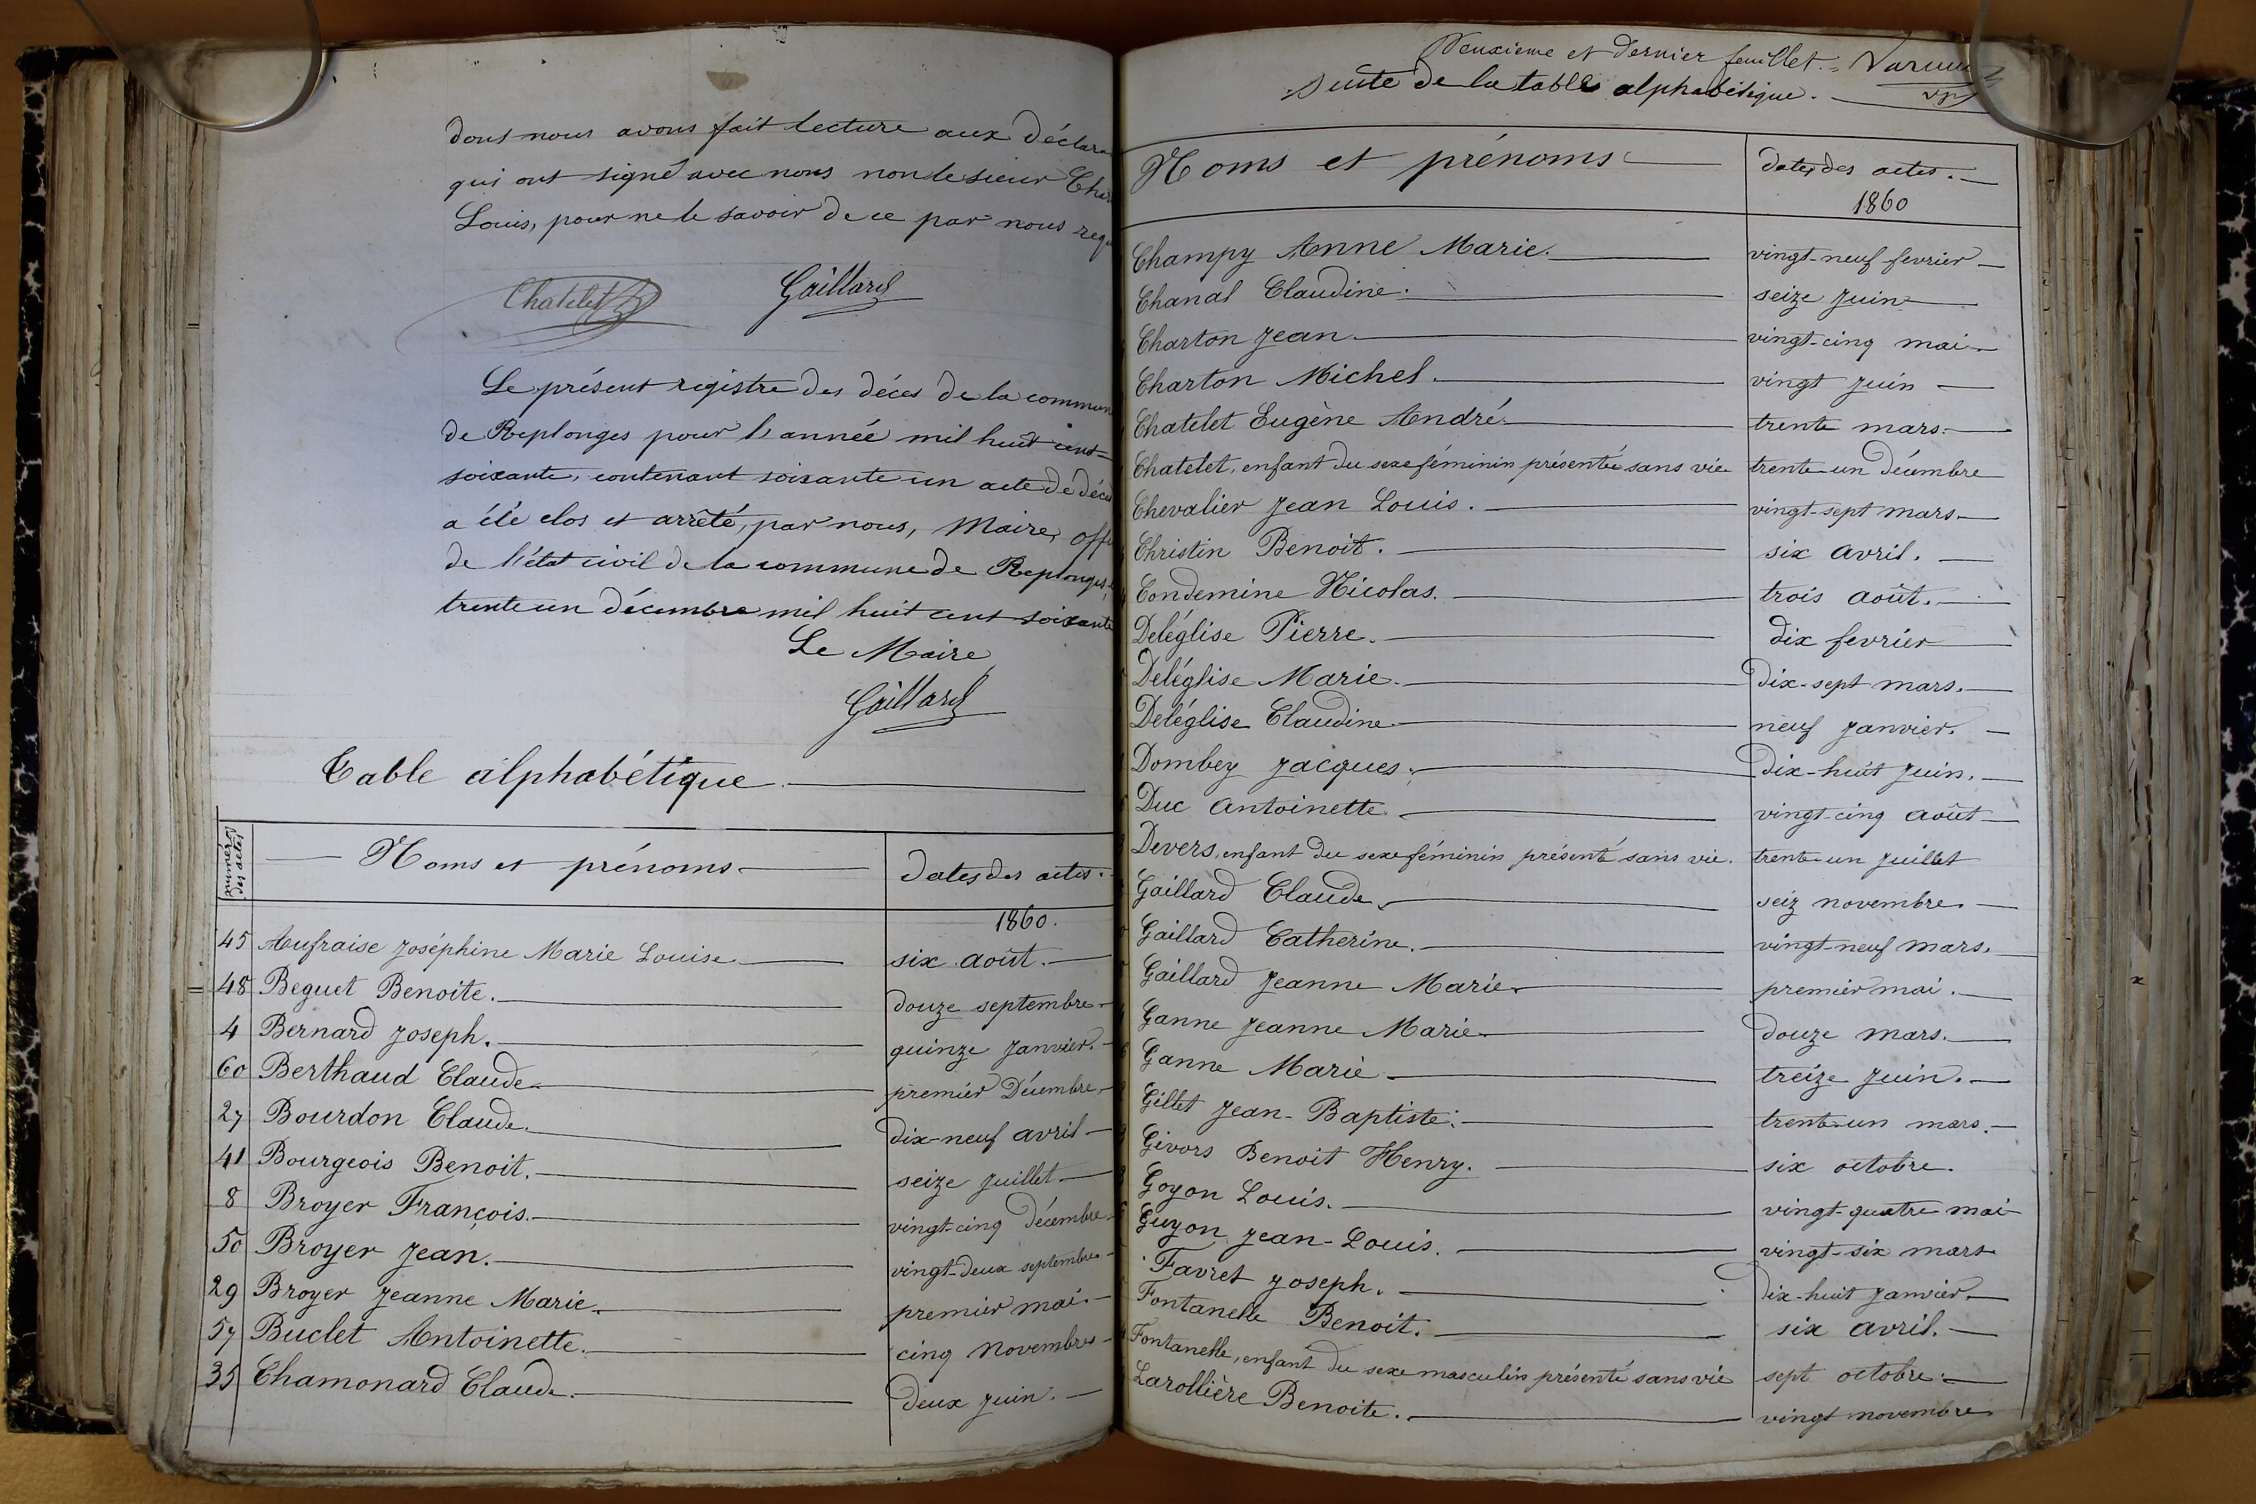 dont nous avons fait lecture aux déclara
qui ont signé avec nous non le sieur Cha
Louis, pour ne le savoir de ce par nous requ
Chatelet Gaillard
Le présent registre des décès de la commun
de Replonges pour l'année mil huit cent
soixante, contenant soixante un acte de décès
a été clos et arrêté, par nous, Maire, offi
de l'état civil de la commune de Replonges,
trente un décembre mil huit cent soixante
Le Maire
Gaillard
Table alphabétique
numéros des actes Noms et prénoms Dates des actes.
1860.
45 Aufraise Joséphine Marie Louise six août.
48 Beguet Benoite. douze septembre
4 Bernard Joseph. quinze Janvier.
60 Berthaud Claude premier Décembre
27 Bourdon Claude. dix-neuf avril
41 Bourgeois Benoit. seize Juillet
8 Broyer François. vingt-cinq décembre
50 Broyer Jean. vingt-deux septembre
29 Broyer Jeanne Marie. premier mai
57 Buclet Antoinette. cinq Novembre
35 Chamonard Claude. deux juin.
Deuxième et dernier feuillet.
Suite de la table alphabétique.
Noms et prénoms dates des actes.
1860
Champy Anne Marie. vingt-neuf fevrier
Chanal Claudine. seize Juin
Charton Jean vingt-cinq mai
Charton Michel. vingt juin
Chatelet Eugène André. trente mars.
Chatelet, enfant du sexe féminin présentée sans vie trente-un décembre
Chevalier Jean Louis. vingt-sept mars
Christin Benoit. six avril.
Condemine Nicolas. trois août.
Deléglise Pierre. dix fevrier
Deléglise Marie. dix-sept mars.
Deléglise Claudine neuf Janvier.
Dombey Jacques. dix-huit juin.
Duc Antoinette vingt-cinq août
Devers, enfant du sexe féminin présenté sans vie. trente-un juillet
Gaillard Claude seiz novembre.
Gaillard Catherine. vingt-neuf mars.
Gaillard Jeanne Marie premier mai.
Ganne Jeanne Marie douze mars.
Ganne Marie treize juin.
Gillet Jean-Baptiste. trente-un mars.
Givors Benoit Henry. six octobre.
Goyon Louis. vingt-quatre mai
Guyon Jean-Louis. vingt-six mars
Favret Joseph. dix-huit Janvier
Fontanelle Benoit. six avril.
Fontanelle, enfant du sexe masculin présenté sans vie sept octobre
Larollière Benoite. vingt novembre